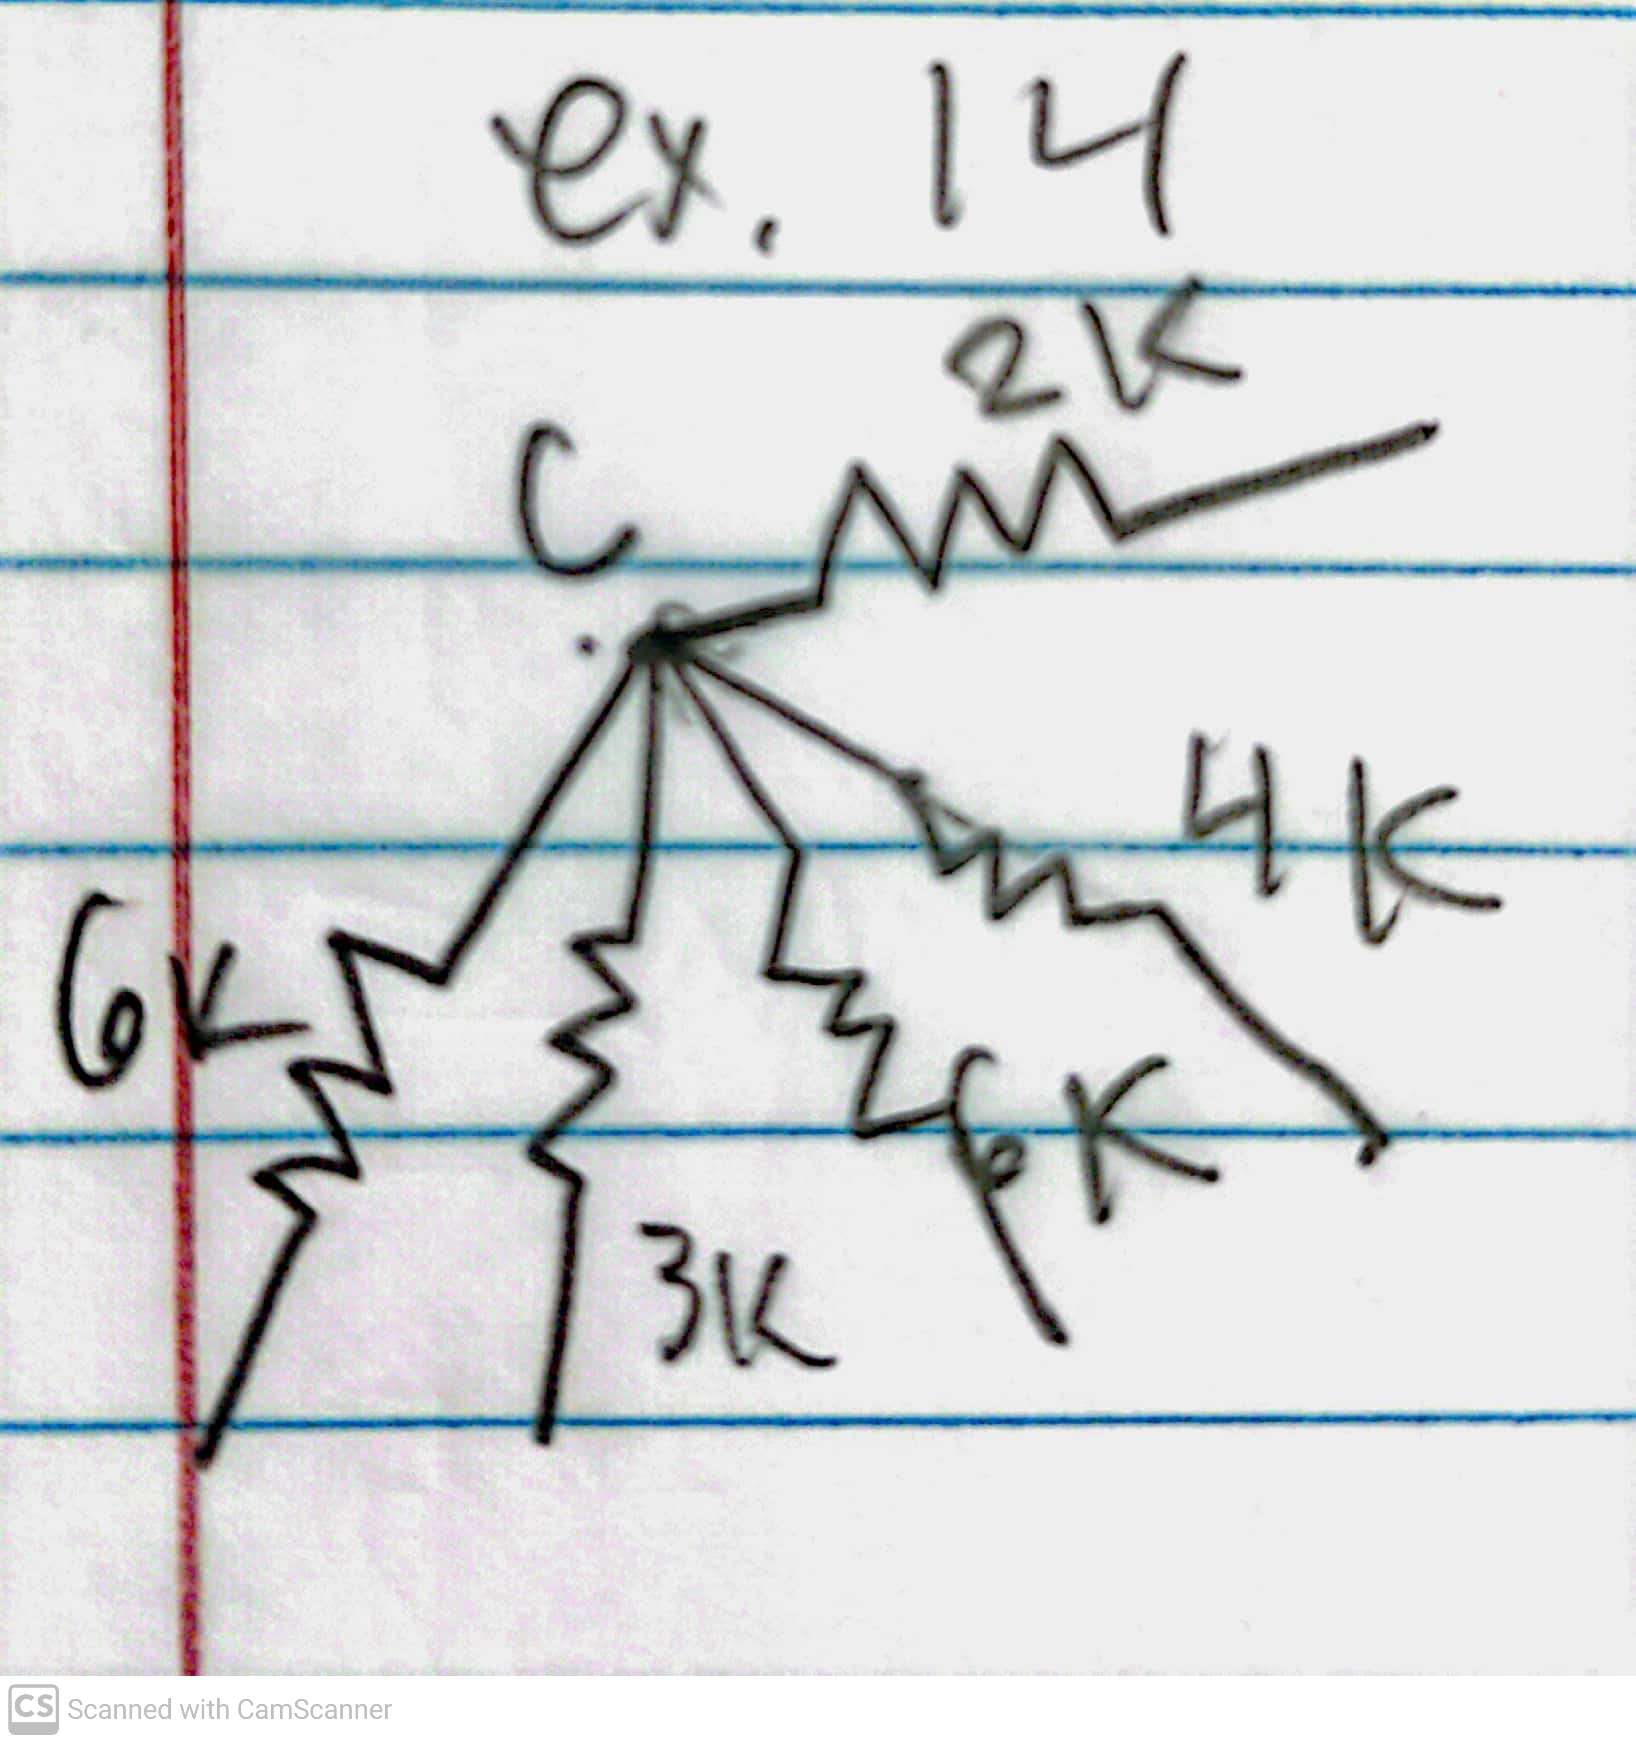 ex. 14
2K
C
4K
6K
6K
3K
CS Scanned with CamScanner